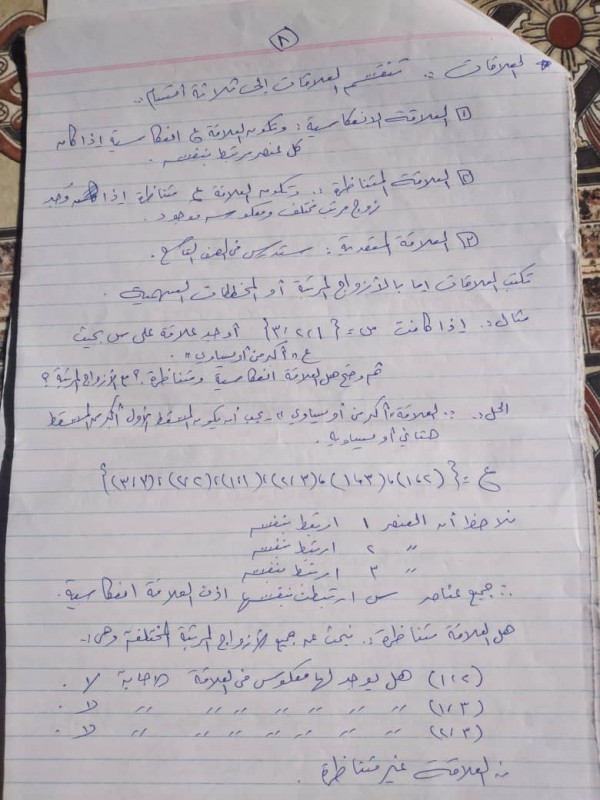 ٨
العلاقات :. تنقسم العلاقات إلى ثلاثة أقسام :.
١ العلاقة الانعكاسية : وتكون العلاقة ع انعكاسية إذا كان
كل عنصر مرتبط بنفسه .
٢ العلاقة المتناظرة :. وتكون العلاقة ع متناظرة إذا وُجد
زوج مرتب مختلف ومعكوسه موجود .
٣ العلاقة المتعدية : ستدرس في الصف التاسع .
تكتب العلاقات إما بالأزواج المرتبة أو المخططات السهمية .
مثال :. إذا كانت س = { ١ ، ٢ ، ٣ } أوجد علاقة على س بحيث
ع " أكبر من أو يساوي " .
ثم وضح هل العلاقة انعكاسية ومتناظرة ؟ الأزواج المرتبة ؟
الحل :. العلاقة " أكبر من أو يساوي " يجب أن يكون المسقط الأول أكبر من المسقط
الثاني أو يساويه .
ع = { (٢ ، ١) ، (٣ ، ١) ، (٣ ، ٢) ، (١ ، ١) ، (٢ ، ٢) ، (٣ ، ٣) }
نلاحظ أن العنصر ١ ارتبط بنفسه
" ٢ ارتبط بنفسه
" ٣ ارتبط بنفسه
∴ جميع عناصر س ارتبطت بنفسها إذن العلاقة انعكاسية .
هل العلاقة متناظرة :. نبحث عن جميع الأزواج المرتبة المختلفة وهي :-
(٢ ، ١) هل يوجد لها معكوس في العلاقة الإجابة لا .
(٣ ، ١) " " " " " " " لا .
(٣ ، ٢) " " " " " " " لا .
∴ العلاقة غير متناظرة .